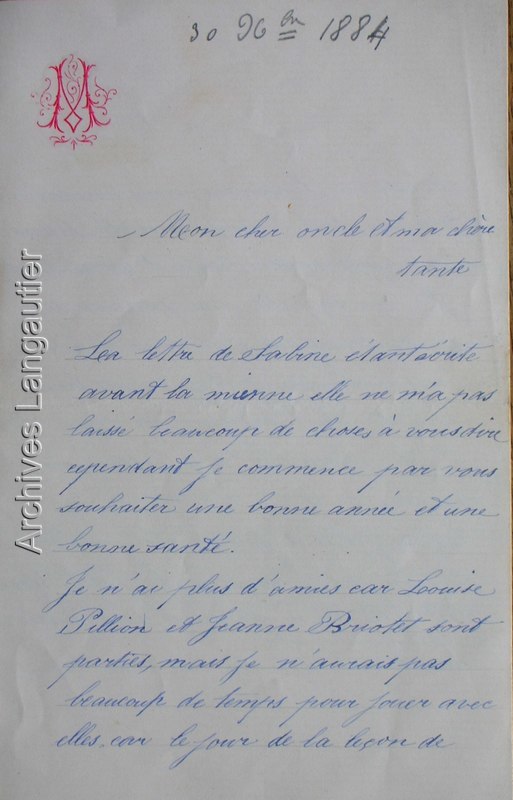 30 Xbre 1884
M
Mon cher oncle et ma chère
tante
La lettre de Sabine étant écrite
avant la mienne elle ne m'a pas
laissé beaucoup de choses à vous dire
cependant je commence par vous
souhaiter une bonne année et une
bonne santé.
Je n'ai plus d'amies car Louise
Pillion et Jeanne Briotet sont
parties, mais je n'aurais pas
beaucoup de temps pour jouer avec
elles, car le jour de la leçon de
Archives Langautier